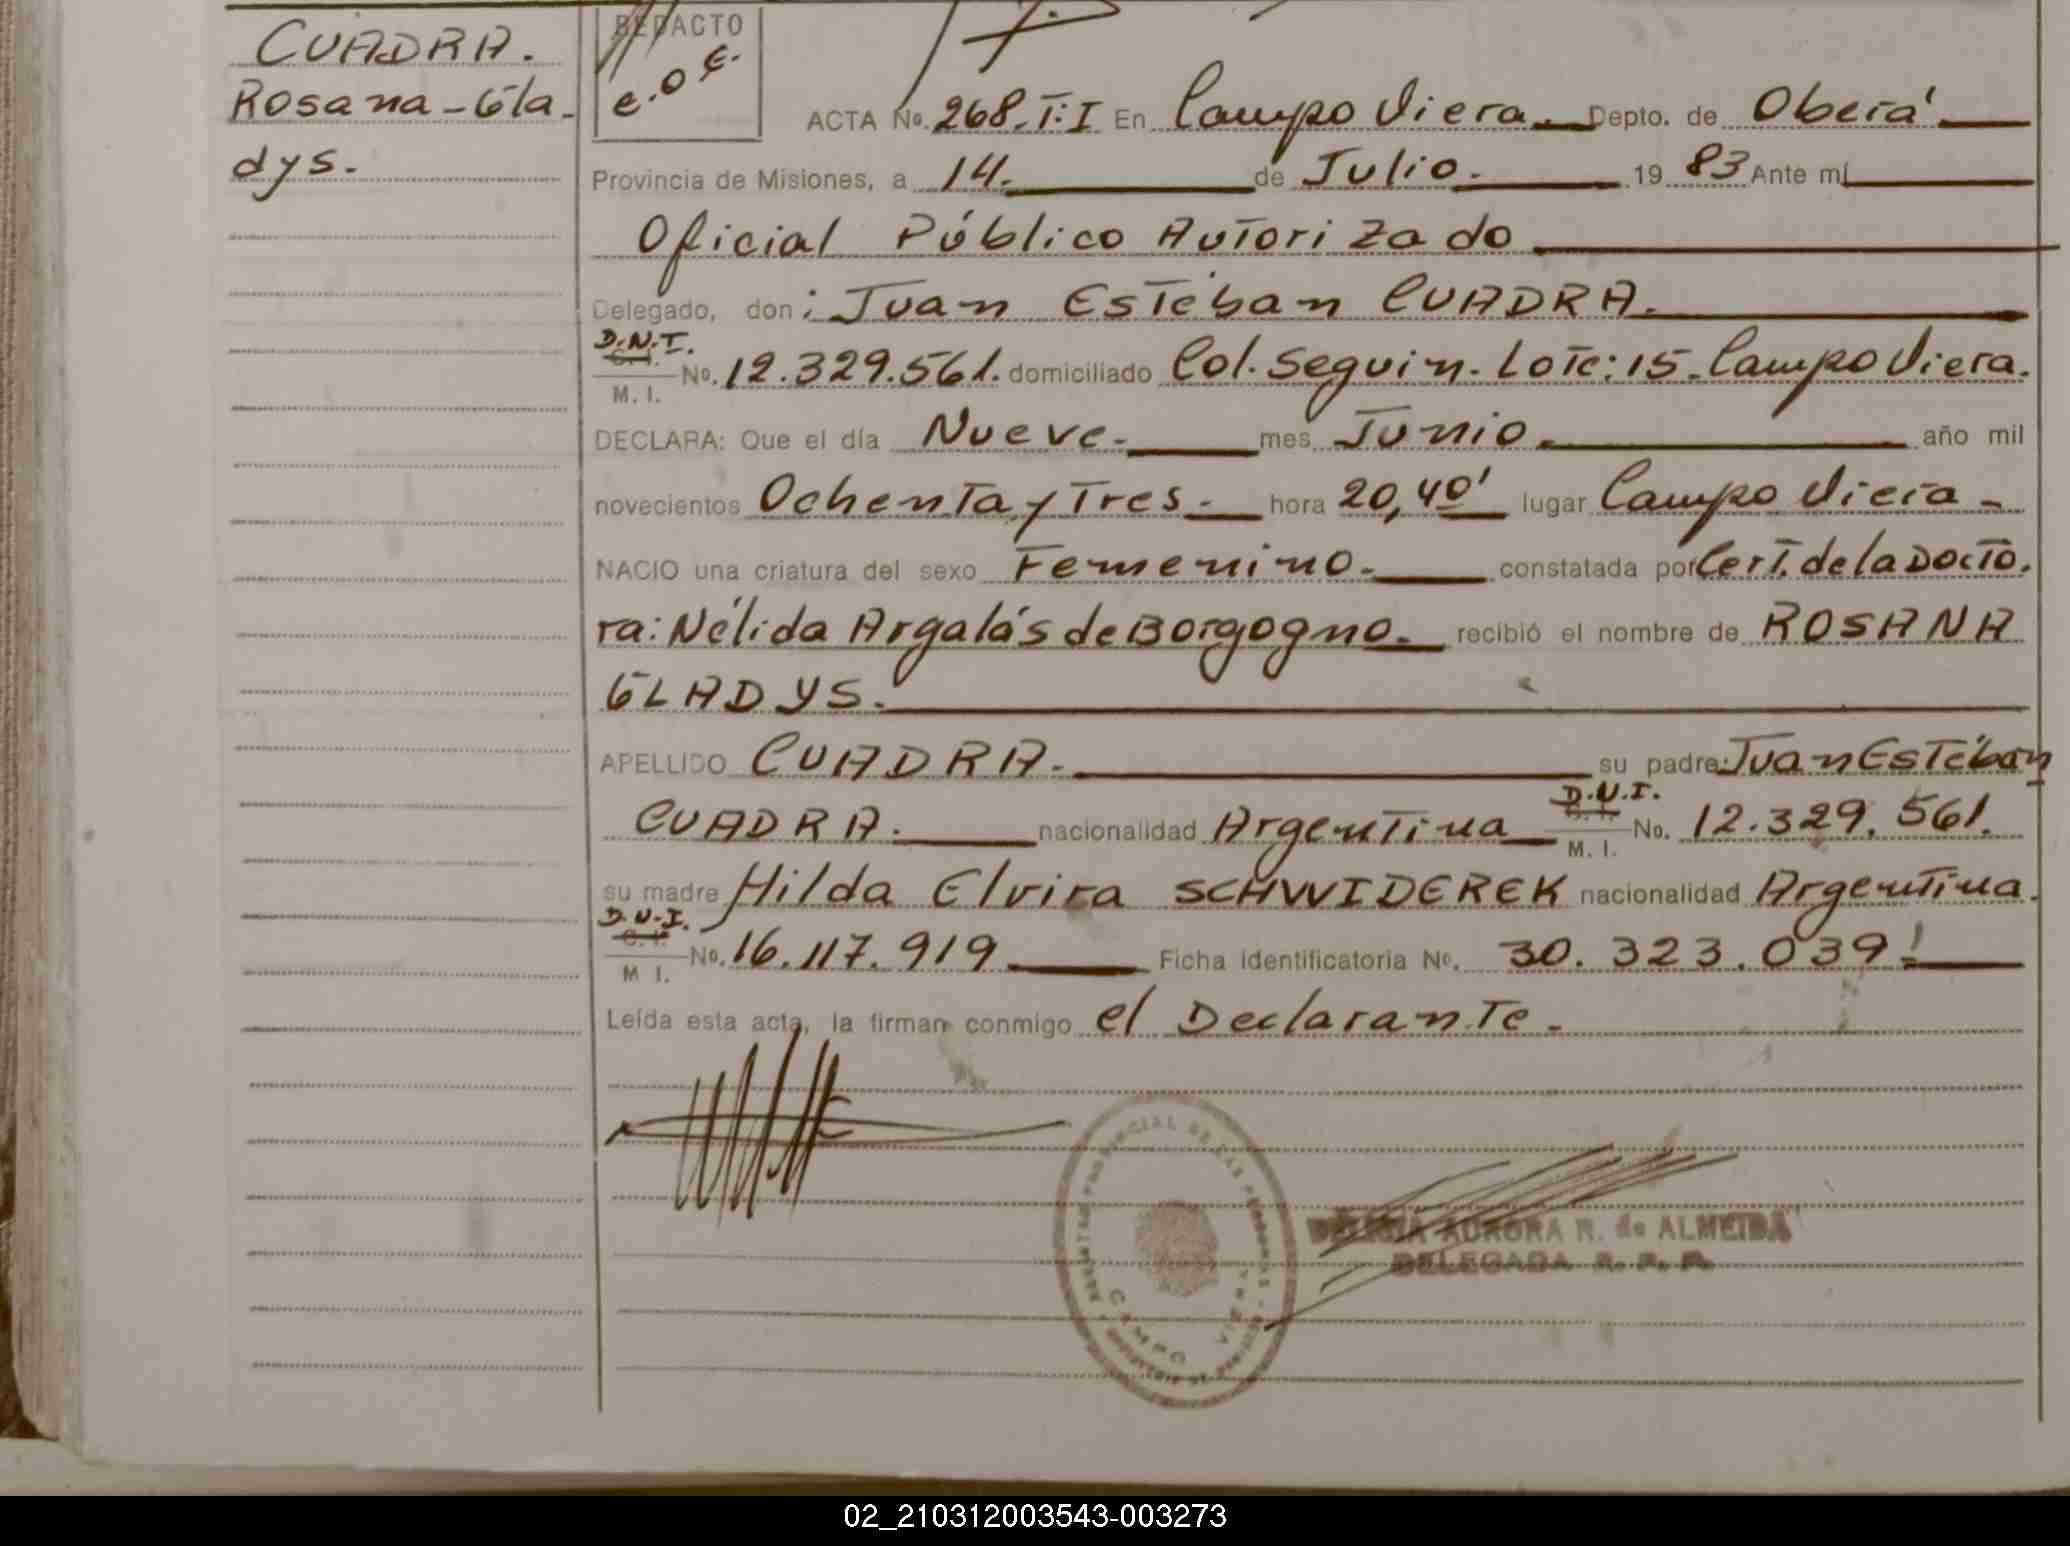 CUADRA.
Rosana-Gla-
dys.
REDACTO
e.o.e.
ACTA No. 268.T:I En Campo Viera Depto. de Oberá
Provincia de Misiones, a 14. de Julio. 19 83 Ante mí
Oficial Público Autorizado
Delegado, don: Juan Estéban CUADRA.
D.N.I.
C.I. No. 12.329.561. domiciliado Col. Seguin. Lote: 15. Campo Viera.
M. I.
DECLARA: Que el día Nueve. mes Junio. año mil
novecientos Ochenta y Tres. hora 20,40' lugar Campo Viera
NACIO una criatura del sexo Femenino. constatada por Cert. de la Docto.
ra: Nélida Argalás de Borgogno. recibió el nombre de ROSANA
GLADYS.
APELLIDO CUADRA. su padre: Juan Estéban
CUADRA. nacionalidad Argentina D.N.I. C.I. No. 12.329.561.
M. I.
su madre Hilda Elvira SCHWIDEREK nacionalidad Argentina.
D.N.I.
C.I. No. 16.117.919 Ficha identificatoria No. 30.323.039!
M I.
Leída esta acta, la firman conmigo el Declarante.
CAMPO VIERA
AURORA R. de ALMEIDA
DELEGADA R. P. P.
02_210312003543-003273